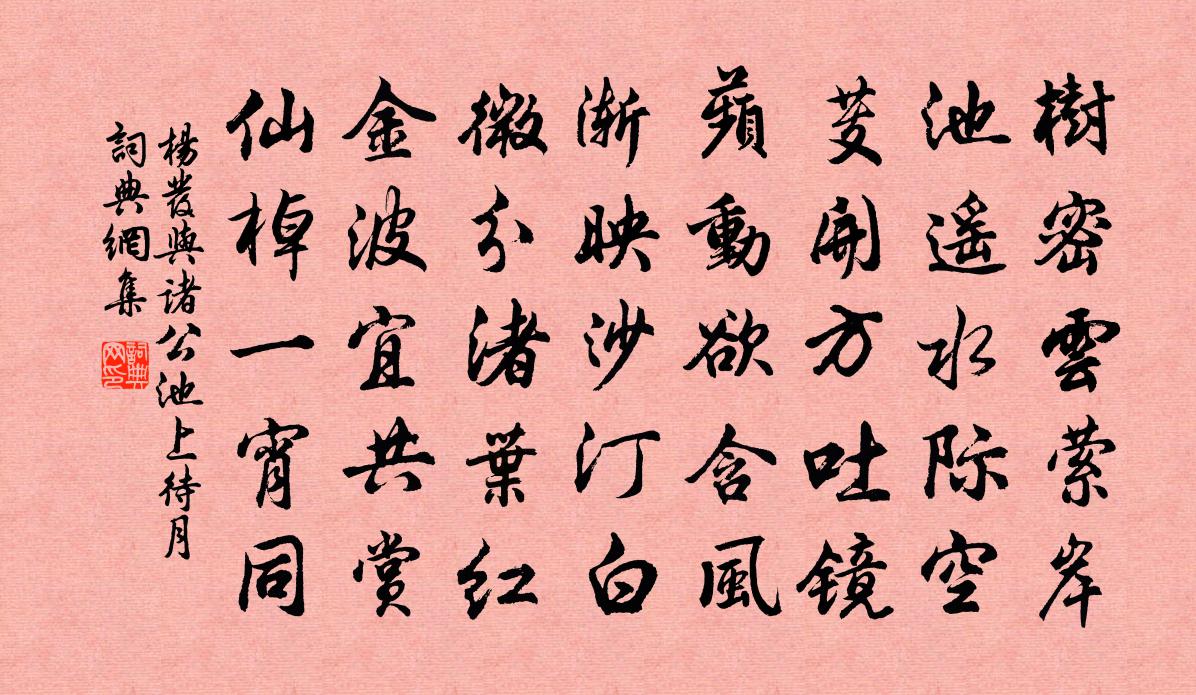 樹密雲萦岸
池遥水际空
芰開方吐镜
蘋動欲含風
渐映沙汀白
微分渚葉红
金波宜共賞
仙棹一宵同
楊發與諸公池上待月
詞典網集
詞典网印